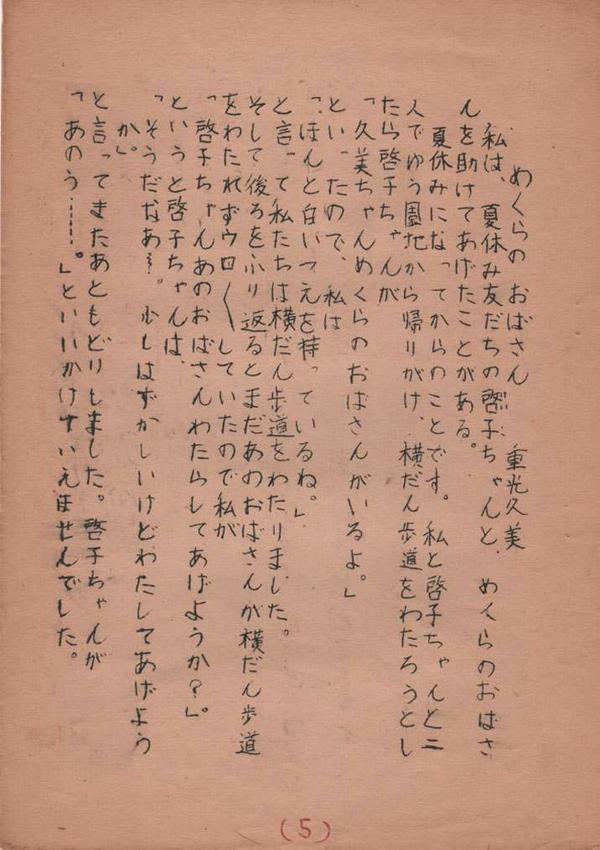 めくらのおばさん　　重光久美
私は、夏休み友だちの啓子ちゃんと、めくらのおばさ
んを助けてあげたことがある。
夏休みになってからのことです。私と啓子ちゃんと二
人でゆう園地から帰りがけ、横だん歩道をわたろうとし
たら啓子ちゃんが
「久美ちゃんめくらのおばさんがいるよ。」
といったので、私は
「ほんと白いつえを持っているね。」
と言って私たちは横だん歩道をわたりました。
そして後ろをふり返るとまだあのおばさんが横だん歩道
をわたれずウロ〳〵していたので私が
「啓子ちゃんあのおばさんわたらしてあげようか？」。
というと啓子ちゃんは、
「そうだなあ～。少しはずかしいけどわたしてあげよう
か」。
と言ってまたあともどりしました。啓子ちゃんが
「あのう……。」といいかけすいえませんでした。
(5)